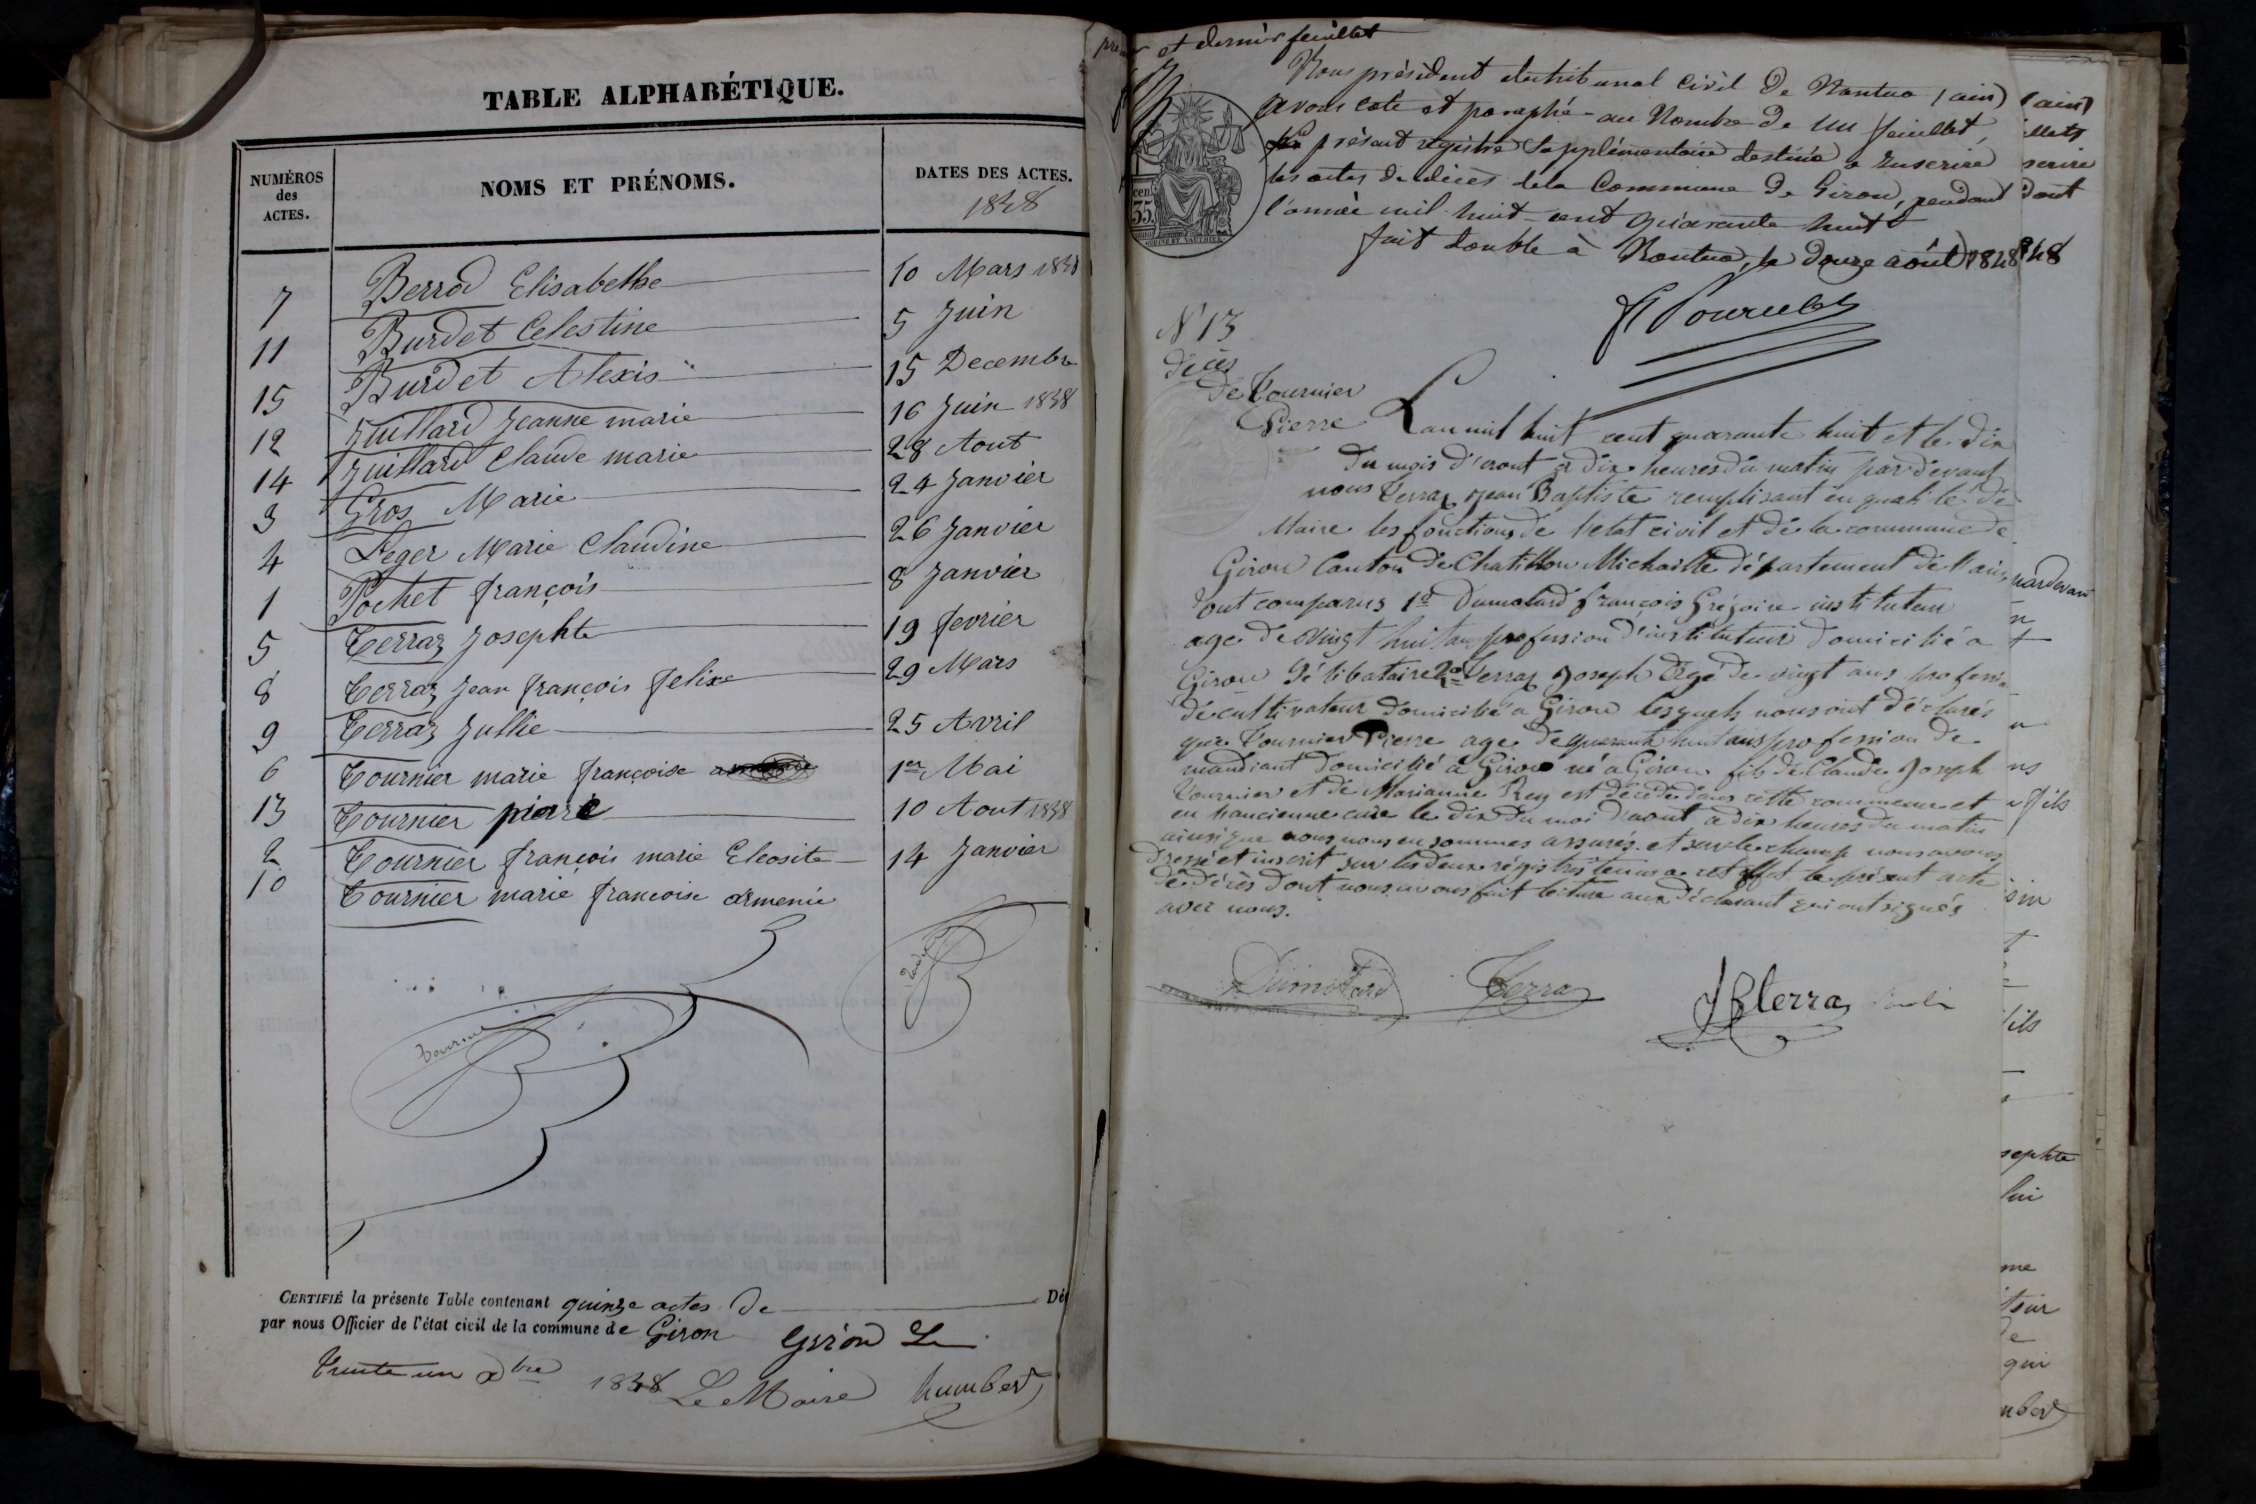 TABLE ALPHABÉTIQUE.
NUMÉROS
des
ACTES.
NOMS ET PRÉNOMS.
DATES DES ACTES.
1848
7 Berrod Elisabethe 10 Mars 1848
11 Burdet Celestine 5 Juin
15 Burdet Alexis 15 Decembre
12 Juillard Jeanne marie 16 Juin 1848
14 Juillard Claude marie 28 Aout
3 Gros Marie 24 Janvier
4 Leger Marie Claudine 26 Janvier
1 Pochet françois 8 Janvier
5 Terraz Josephte 19 fevrier
8 Terraz Jean françois felixe 29 Mars
9 Terraz Jullie 25 Avril
6 Tournier marie françoise 1er Mai
13 Tournier pierre 10 Aout 1848
2 Tournier françois marie Eleosite 14 Janvier
10 Tournier marie francoise armenie
CERTIFIÉ la présente Table contenant quinze actes de Dé
par nous Officier de l'état civil de la commune de Giron Giron Le
trente un xbre 1848 Le Maire humbert
et dernier feuillet
Nous président du tribunal Civil De Nantua (ain)
avons coté et paraphé au Nombre De un feuillet,
le présent registre Supplémentaire destiné a Inscrire
les actes de décès de la Commune De Giron, pendant
l'année mil huit cent quarante huit
fait double à Nantua, le Douze août 1848
cen.
35.
N° 13
Décès
de Tournier
Pierre
L'an mil huit cent quarante huit et le dix
du mois d'aout à dix heures du matin par devant
nous Terraz Jean Baptiste remplisant en qualité de
Maire les fonctions de l'etat civil et de la commune de
Giron Canton de Chatillon Michaille département de l'ain,
sont comparus 1° Dumolard françois Grégoire instituteur
age de vingt huit ans profession d'instituteur domicilié a
Giron Célibataire 2° Terraz Joseph âgé de vingt ans profession
de cultivateur domicilié a Giron lesquels nous ont déclarés
que Tournier Pierre age de quarante huit ans profession de
mandiant domicilié a Giron né a Giron fils de Claude Joseph
Tournier et de Marianne Rey est décédé dans cette commune et
en l'ancienne cure le dix du moi d'aout à dix heures du matin
ainsi que nous nous en sommes assurés. et sur le champ nous avons
dressé et inscrit sur les deux régistres tenus a cet effet le présent acte
de décès dont nous avons fait lecture aux déclarant qui ont signés
avec nous.
Dumolard Terraz JB terraz